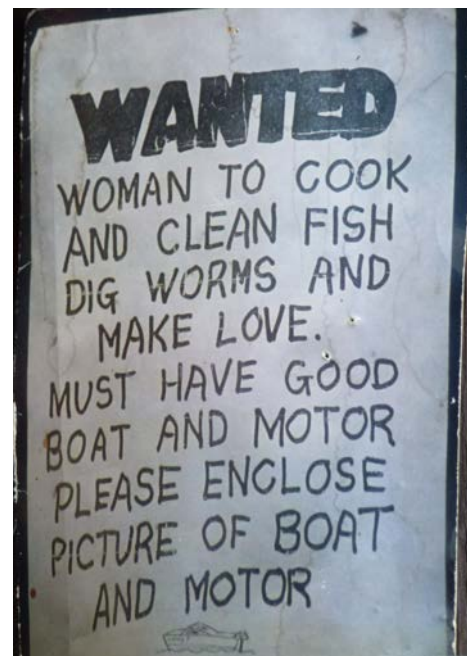 WANTED
WOMAN TO COOK
AND CLEAN FISH
DIG WORMS AND
MAKE LOVE.
MUST HAVE GOOD
BOAT AND MOTOR
PLEASE ENCLOSE
PICTURE OF BOAT
AND MOTOR